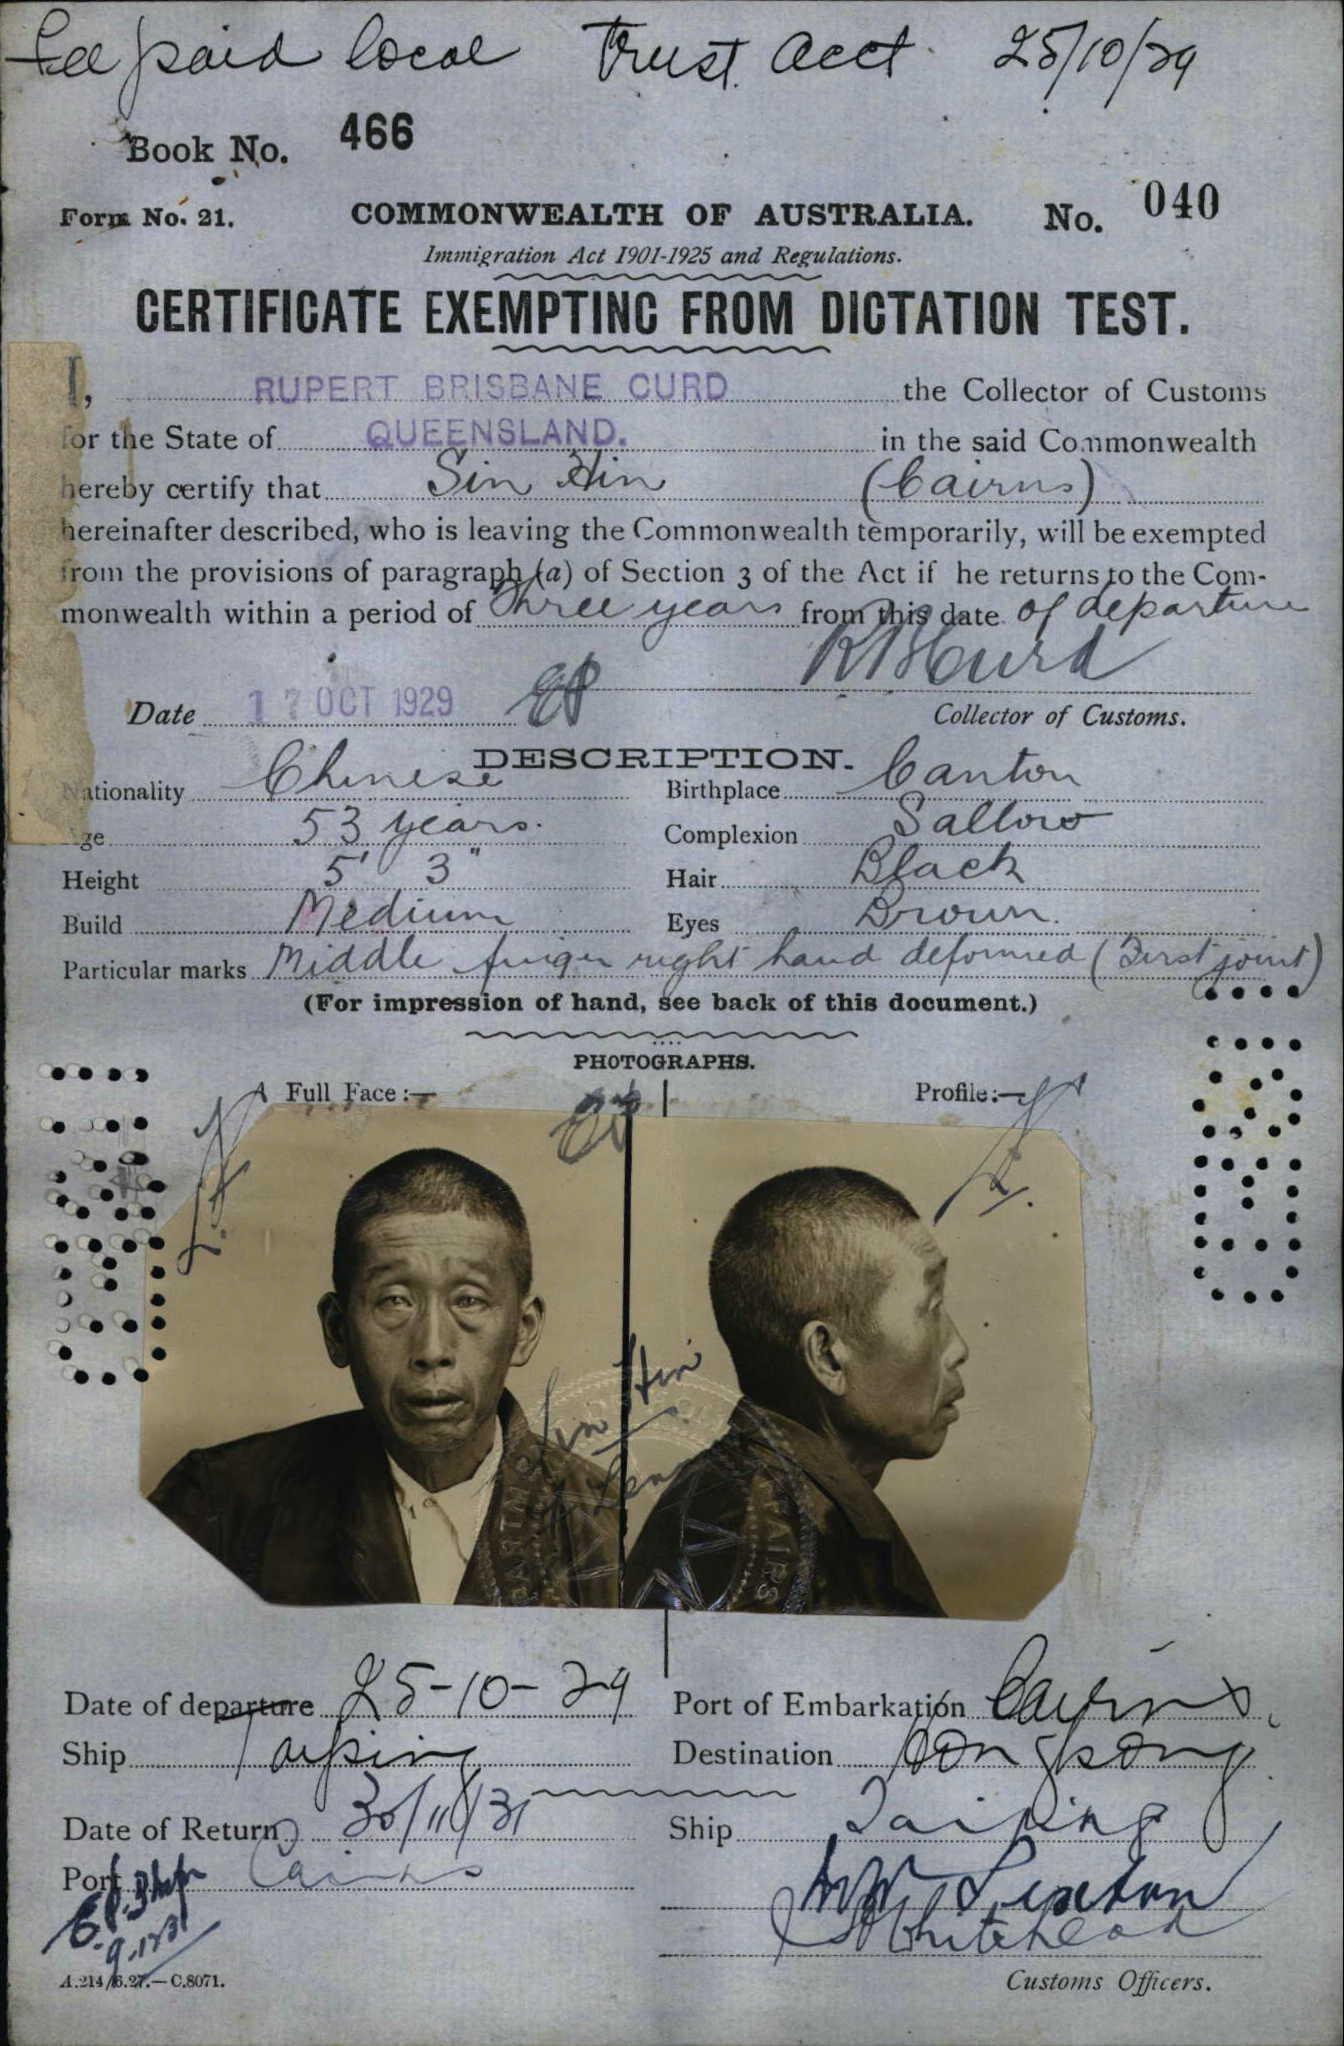 Fee paid local Trust Acct. 25/10/29
Book No. 466
Form No. 21. COMMONWEALTH OF AUSTRALIA. No. 040
Immigration Act 1901-1925 and Regulations.
CERTIFICATE EXEMPTING FROM DICTATION TEST.
I, RUPERT BRISBANE CURD the Collector of Customs
for the State of QUEENSLAND. in the said Commonwealth
hereby certify that Sin Hin (Cairns)
hereinafter described, who is leaving the Commonwealth temporarily, will be exempted
from the provisions of paragraph (a) of Section 3 of the Act if he returns to the Com-
monwealth within a period of Three years from this date of departure
R B Curd
Date 17 OCT 1929 Collector of Customs.
DESCRIPTION.
Nationality Chinese Birthplace Canton
Age 53 years. Complexion Sallow
Height 5' 3" Hair Black
Build Medium Eyes Brown.
Particular marks Middle finger right hand deformed (First joint)
(For impression of hand, see back of this document.)
PHOTOGRAPHS.
Full Face:— Profile:—
Sin Hin
Date of departure 25-10-29 Port of Embarkation Cairns.
Ship Taiping Destination Hongkong
Date of Return 30/11/31 Ship Taiping
Port Cairns
9.12.31 Whitehead
A.214/6.27.—C.8071. Customs Officers.